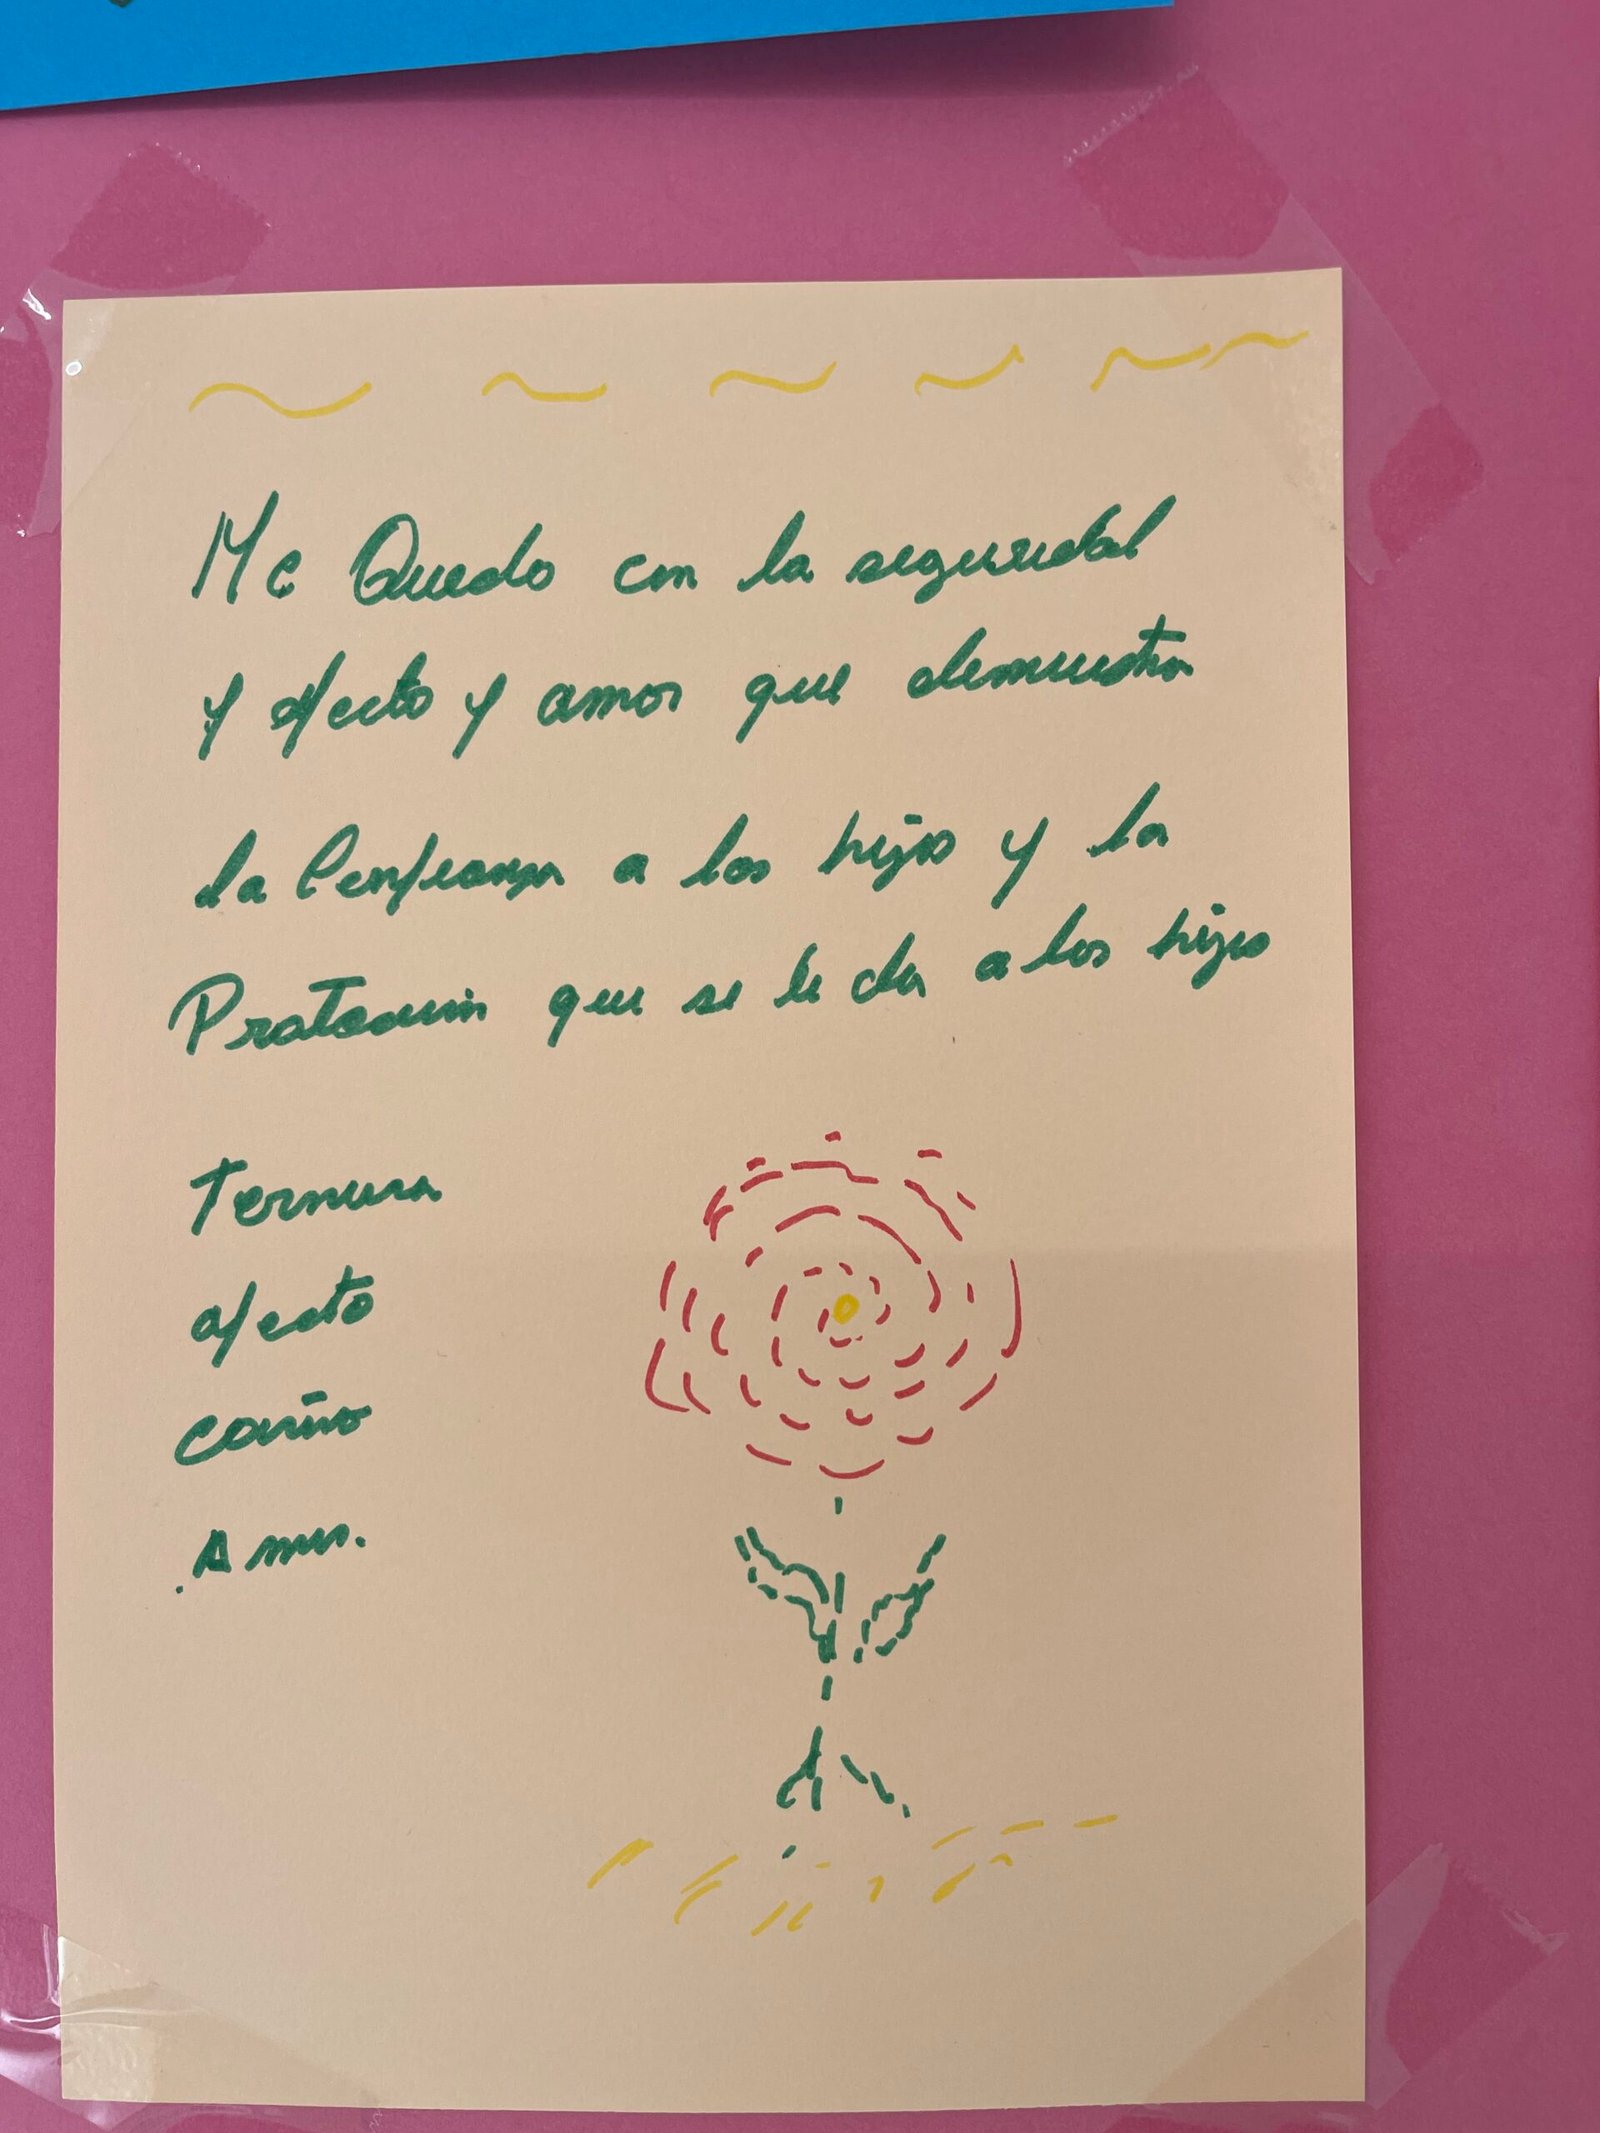 Me Quedo con la seguridad
y afecto y amor que demuestra
la Confianza a los hijos y la
Protección que se le da a los hijos
Ternura
afecto
cariño
Amor.